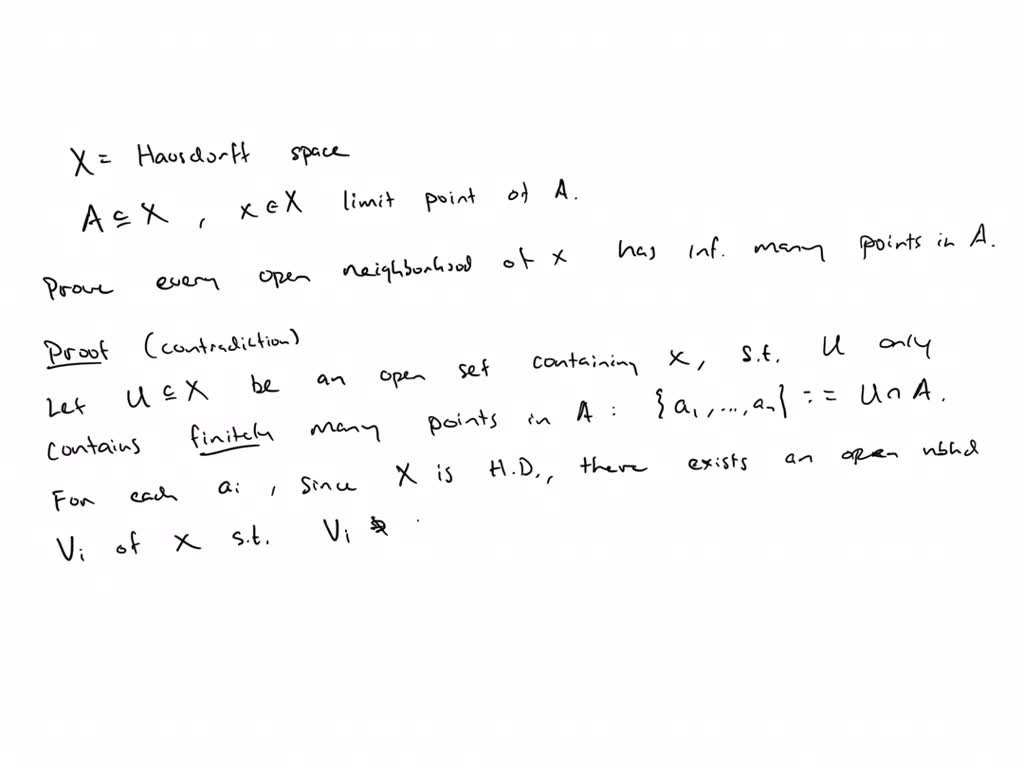 X = Hausdorff space
A ⊆ X , x ∈ X limit point of A.
Prove every open neighborhood of x has inf. many points in A.
Proof (contradiction)
Let U ⊆ X be an open set containing x, s.t. U only
contains finitely many points in A : {a₁,...,aₙ} := U ∩ A.
For each aᵢ , since X is H.D., there exists an open nbhd
Vᵢ of x s.t. Vᵢ